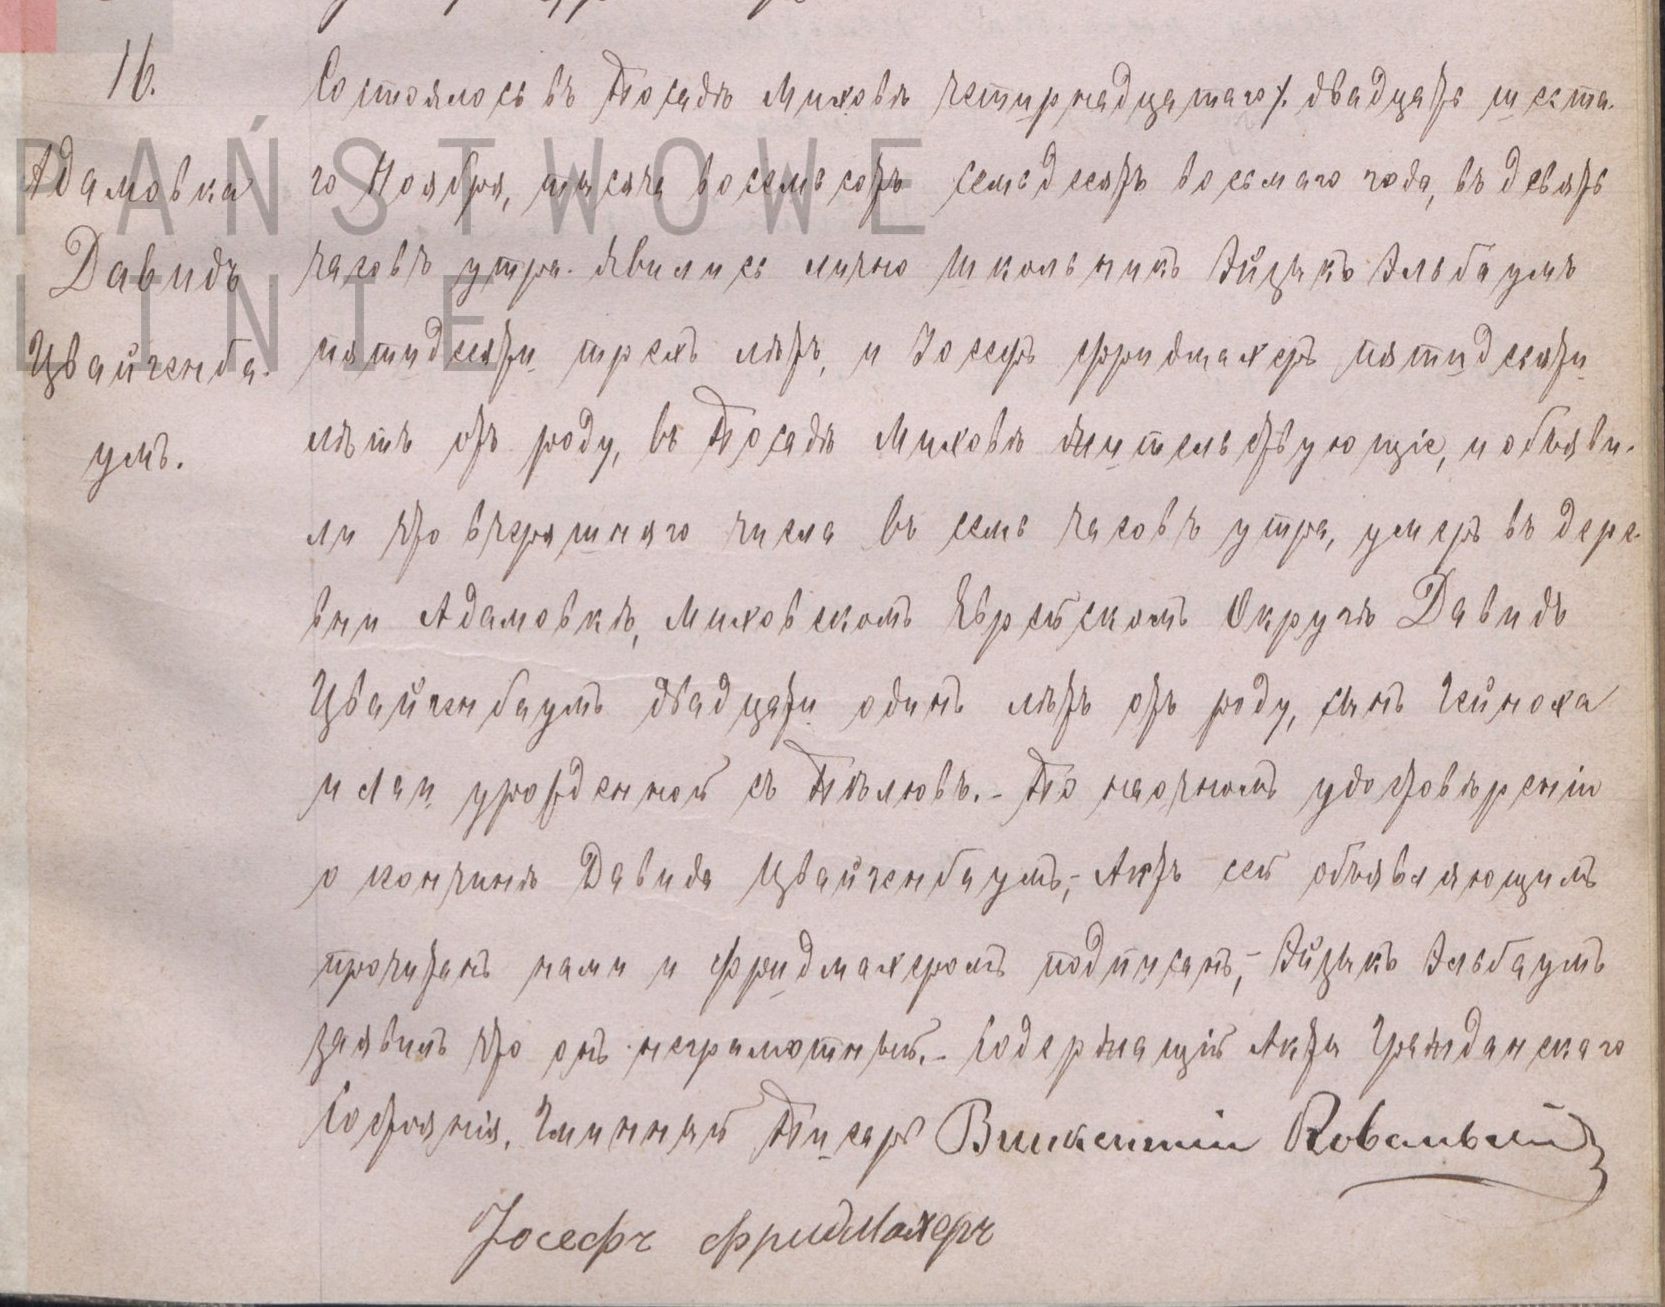 16.
Адамовка
Давидъ
Цвайгенба-
умъ.
Состоялось въ Посадѣ Миховѣ четырнадцатаго /. двадцать шеста-
го Ноября, тысяча восемьсотъ семьдесятъ восьмаго года, въ девять
часовъ утра. Явились лично школьникъ Эйзыкъ Эльбаумъ
пятидесяти трехъ лѣтъ, и Іосефъ Фридмахеръ пятидесяти
лѣтъ отъ роду, въ Посадѣ Миховѣ жительствующіе, и объяви-
ли что вчерашняго числа въ семь часовъ утра, умеръ въ дере-
вни Адамовкѣ, Миховскомъ Еврейскомъ Округѣ Давидъ
Цвайгенбаумъ двадцати одинъ лѣтъ отъ роду, сынъ Гейноха
и Лаи урожденной съ .- По наочномъ удостовѣреніи
о кончинѣ Давида Цвайгенбаумъ,- Актъ сей объявляющимъ
прочитанъ нами и Фридмахеромъ подписанъ,- Эйзыкъ Эльбаумъ
заявилъ что онъ неграмотный.- Содержащій Акты Гражданскаго
Состоянія, Гминный Писарь Викентій
Іосефъ Фридмахеръ
PAŃSTWOWE
LINIE